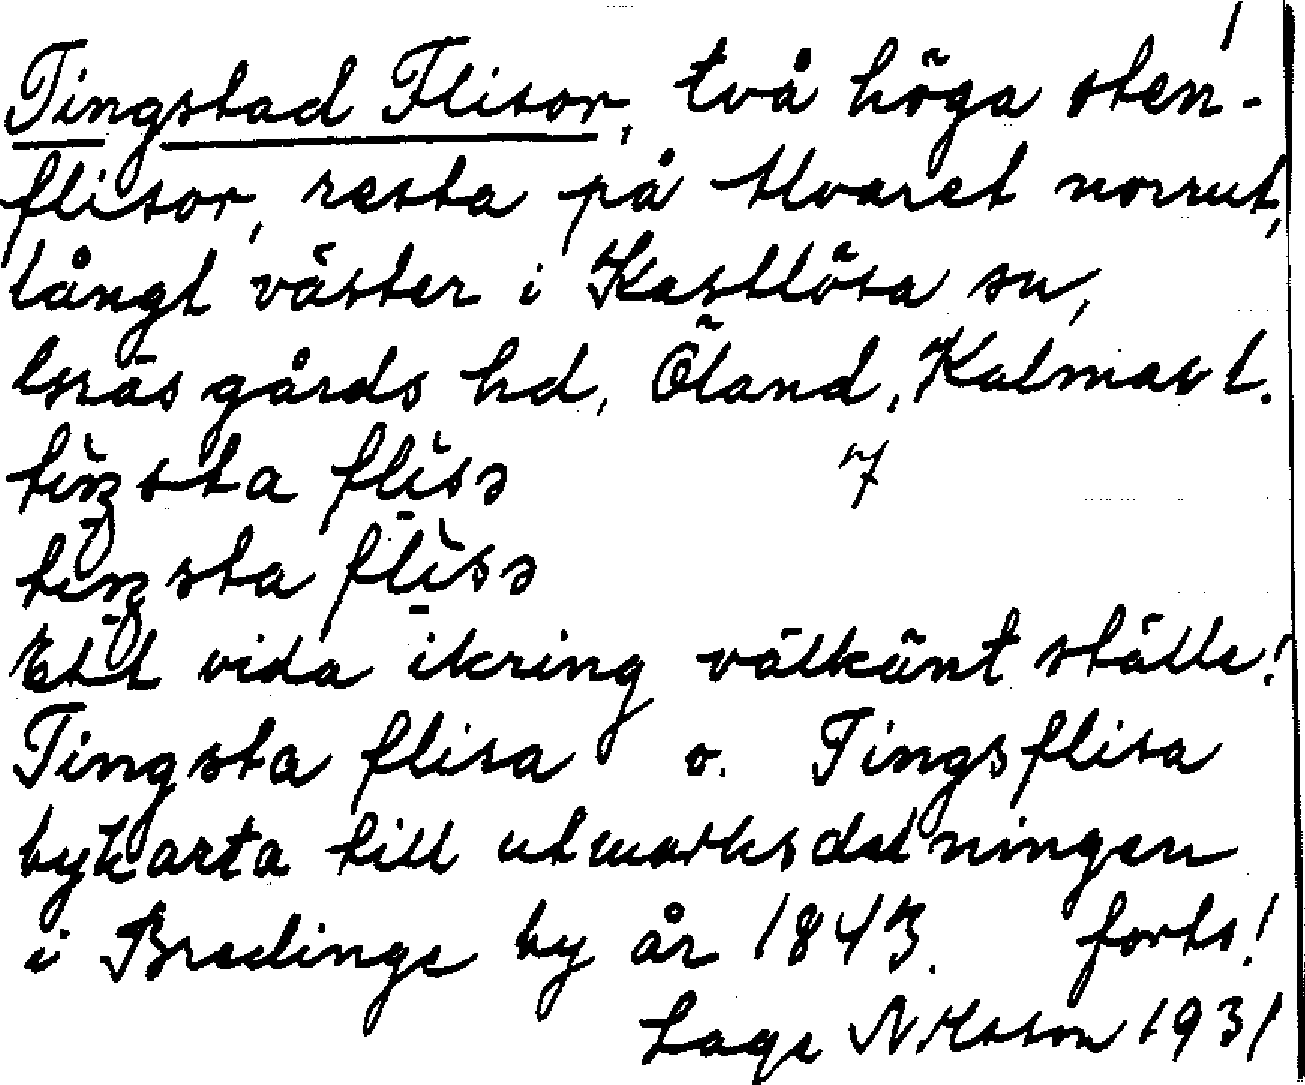 1
Tingstad Flisor, två höga sten-
flisor, resta på Alvaret norrut,
långt väster i Kastlösa sn,
Gräsgårds hd, Öland, Kalmar l.
7
Ett vida ikring välkänt ställe!
Tingsta flisa o. Tingsflisa
bykarta till utmarksdelningen
i Bredinge by år 1843. forts!
Lage Nilsson 1931